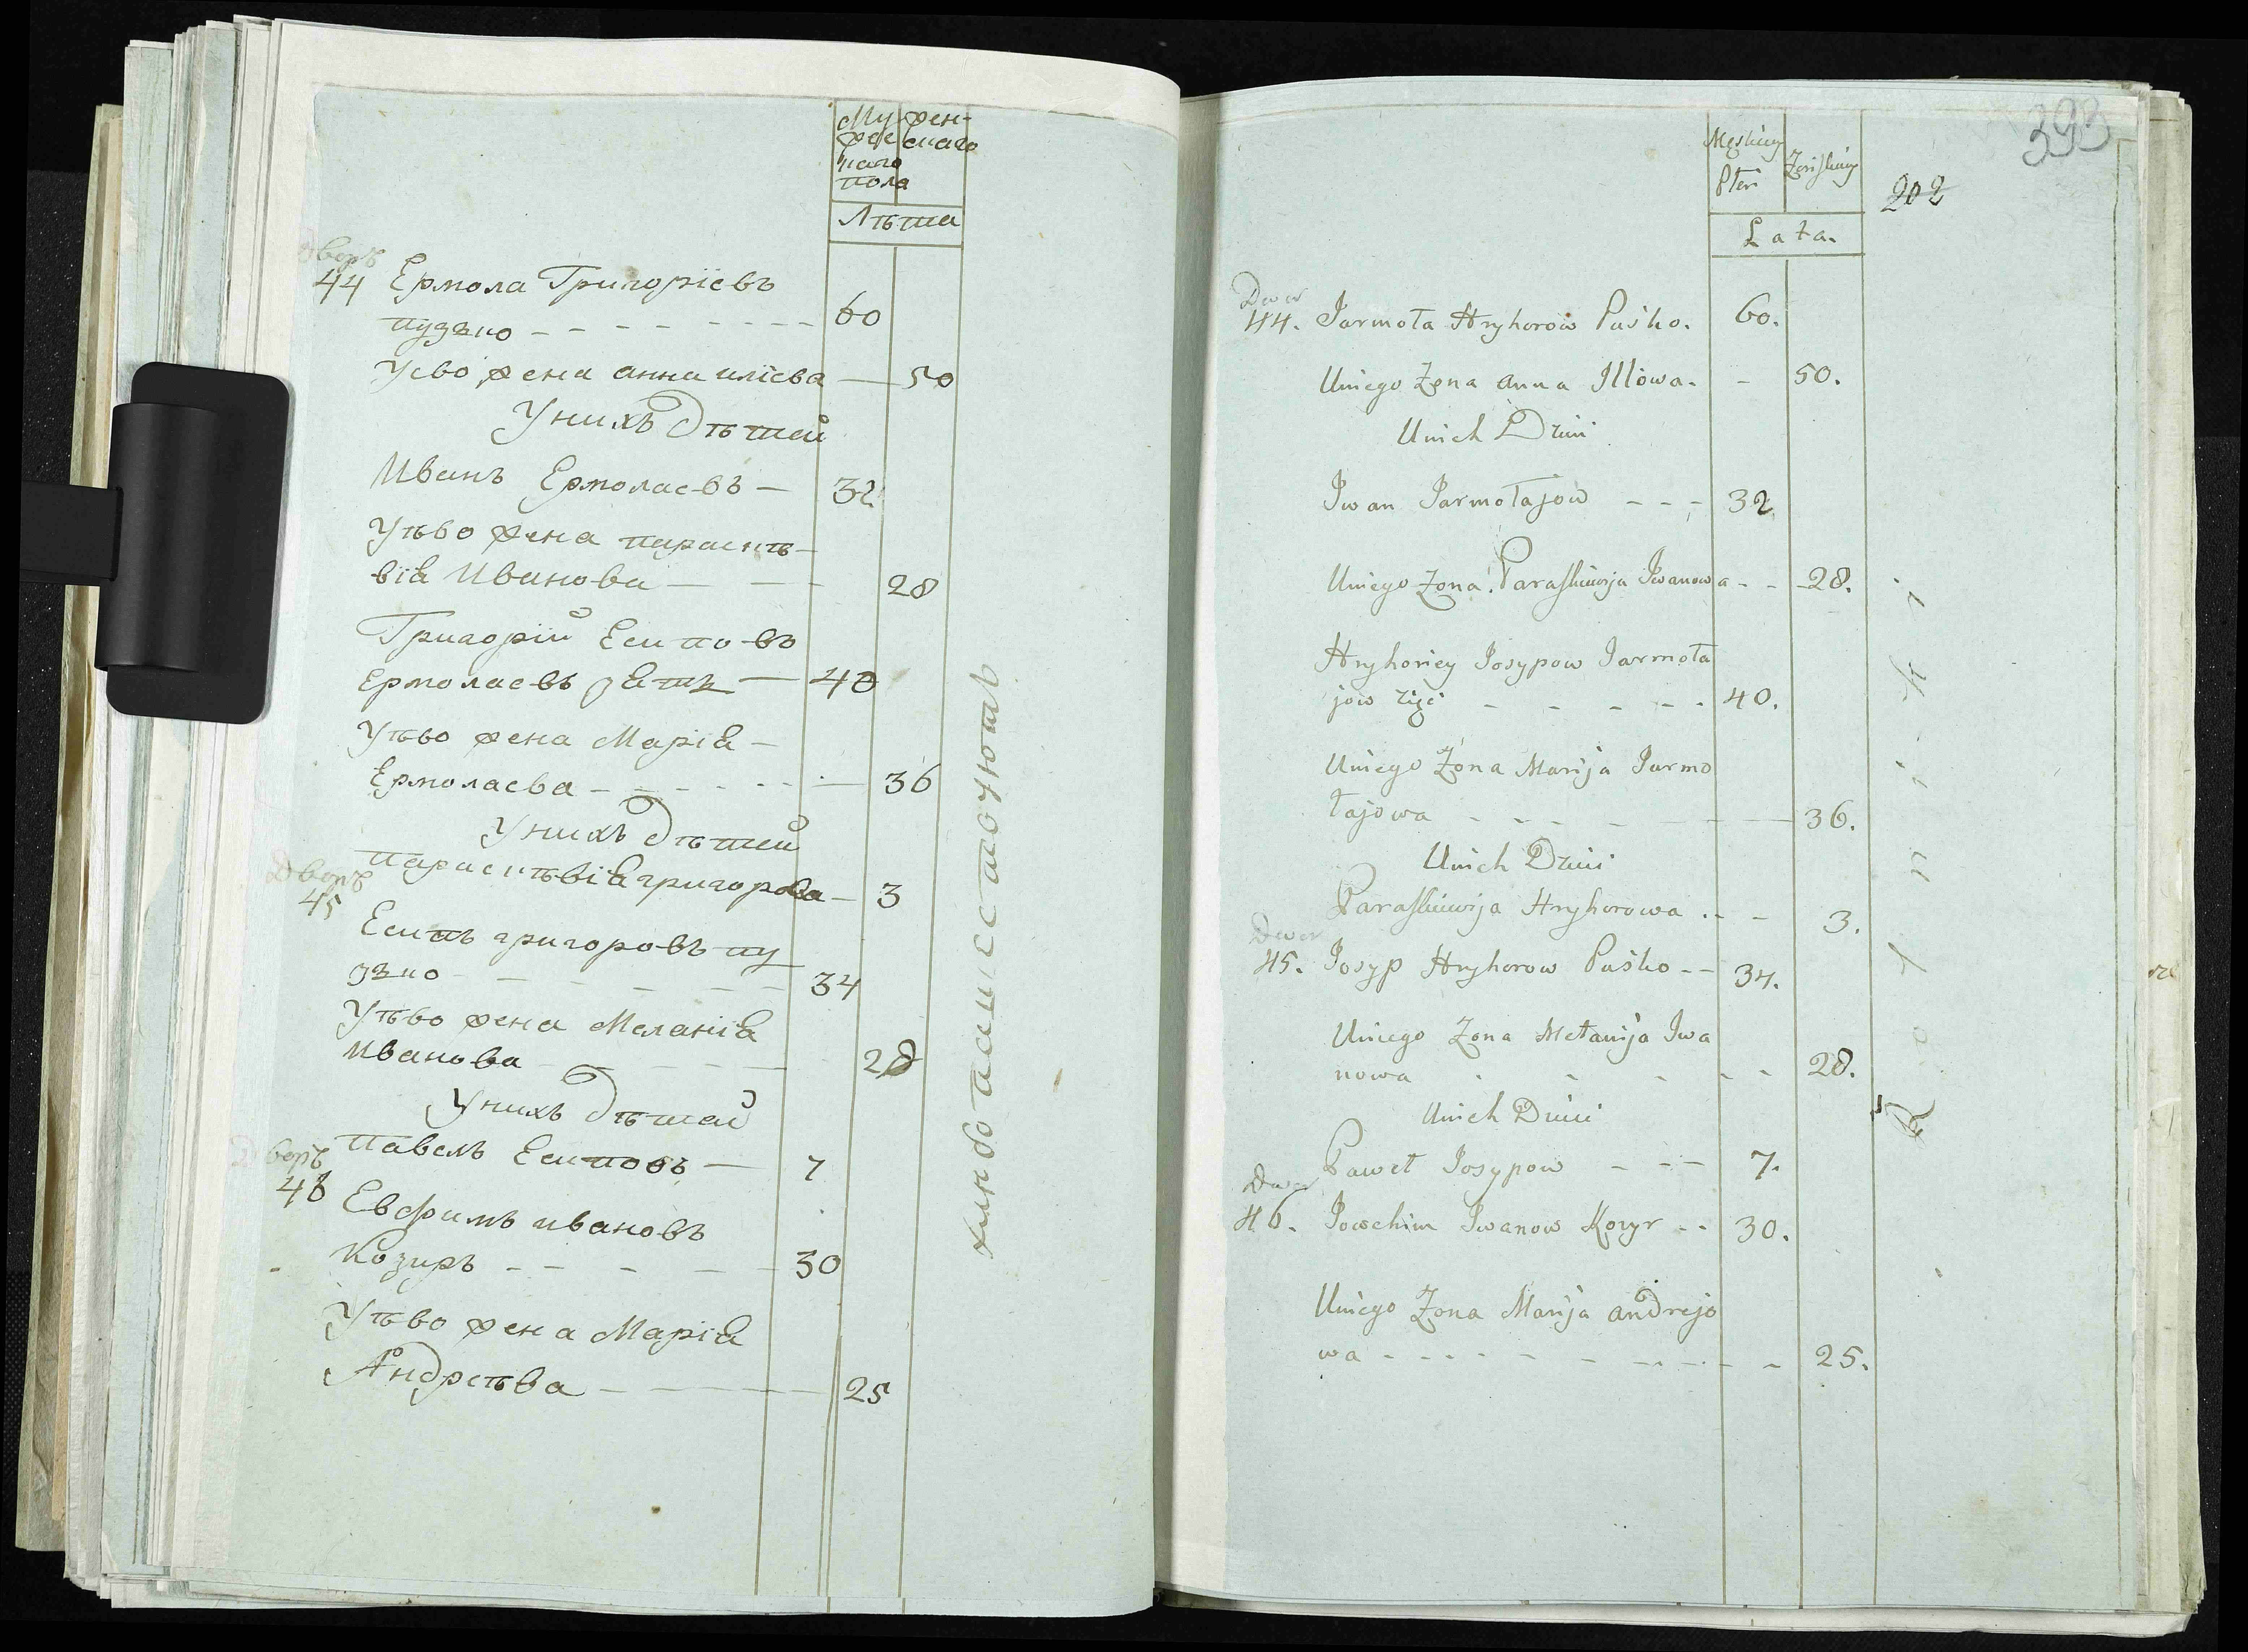 Му-
жес
каго
пола
жен-
скаго
Лѣта
Дворъ
44 Ермола Григоріевъ
пузько - - - - - - - - 60
Уево жена анна иліева — 50
Унихъ Дѣтей
Иванъ Ермолаевъ — 32
Уѣво жена параскѣ-
віа Иванова — — — 28
Григорій Есиповъ
Ермолаевъ зать — 40
Уѣво жена Маріа -
Ермолаева - - - - - - - 36
Унихъ Дѣтей
параскѣвіа григорова — 3
Дворъ
45
Есипъ григоровъ пу
зько - - - - - - 34
Уѣво жена Меланіа
Иванова - - - - 28
Унихъ Дѣтей
павелъ Есиповъ — 7
Дворъ
46
Евфимъ ивановъ
Козиръ - - - - - - 30
Уѣво жена Маріа
Андрѣева - - - - - 25
393
202
Męskiey
Płeri
Zenskiey
Lata.
Dwor
44. Jarmoła Hryhorow Puśko. 60.
Uniego Zona anna Illowa. - 50.
Unich Dzieci
Iwan Jarmołajow - - - 32
Uniego Zona Paraskiewija Iwanowa - - 28.
Hryhoriey Josypow Jarmoła
jow zięć - - - - - 40.
Uniego Zona Marija Jarmo
łajowa - - - - - - 36.
Unich Dzieci
Paraskiewija Hryhorowa . - - 3.
Dwor
45. Josyp Hryhorow Puśko - - 34.
Uniego Zona Mełanija Iwa
nowa - - - - - 28.
Unich Dzieci
Paweł Josypow - - - 7.
Dwor
46. Jowchim Iwanow Kozyr - - 30.
Uniego Zona Marija andrejo
wa - - - - - - - - - 25.